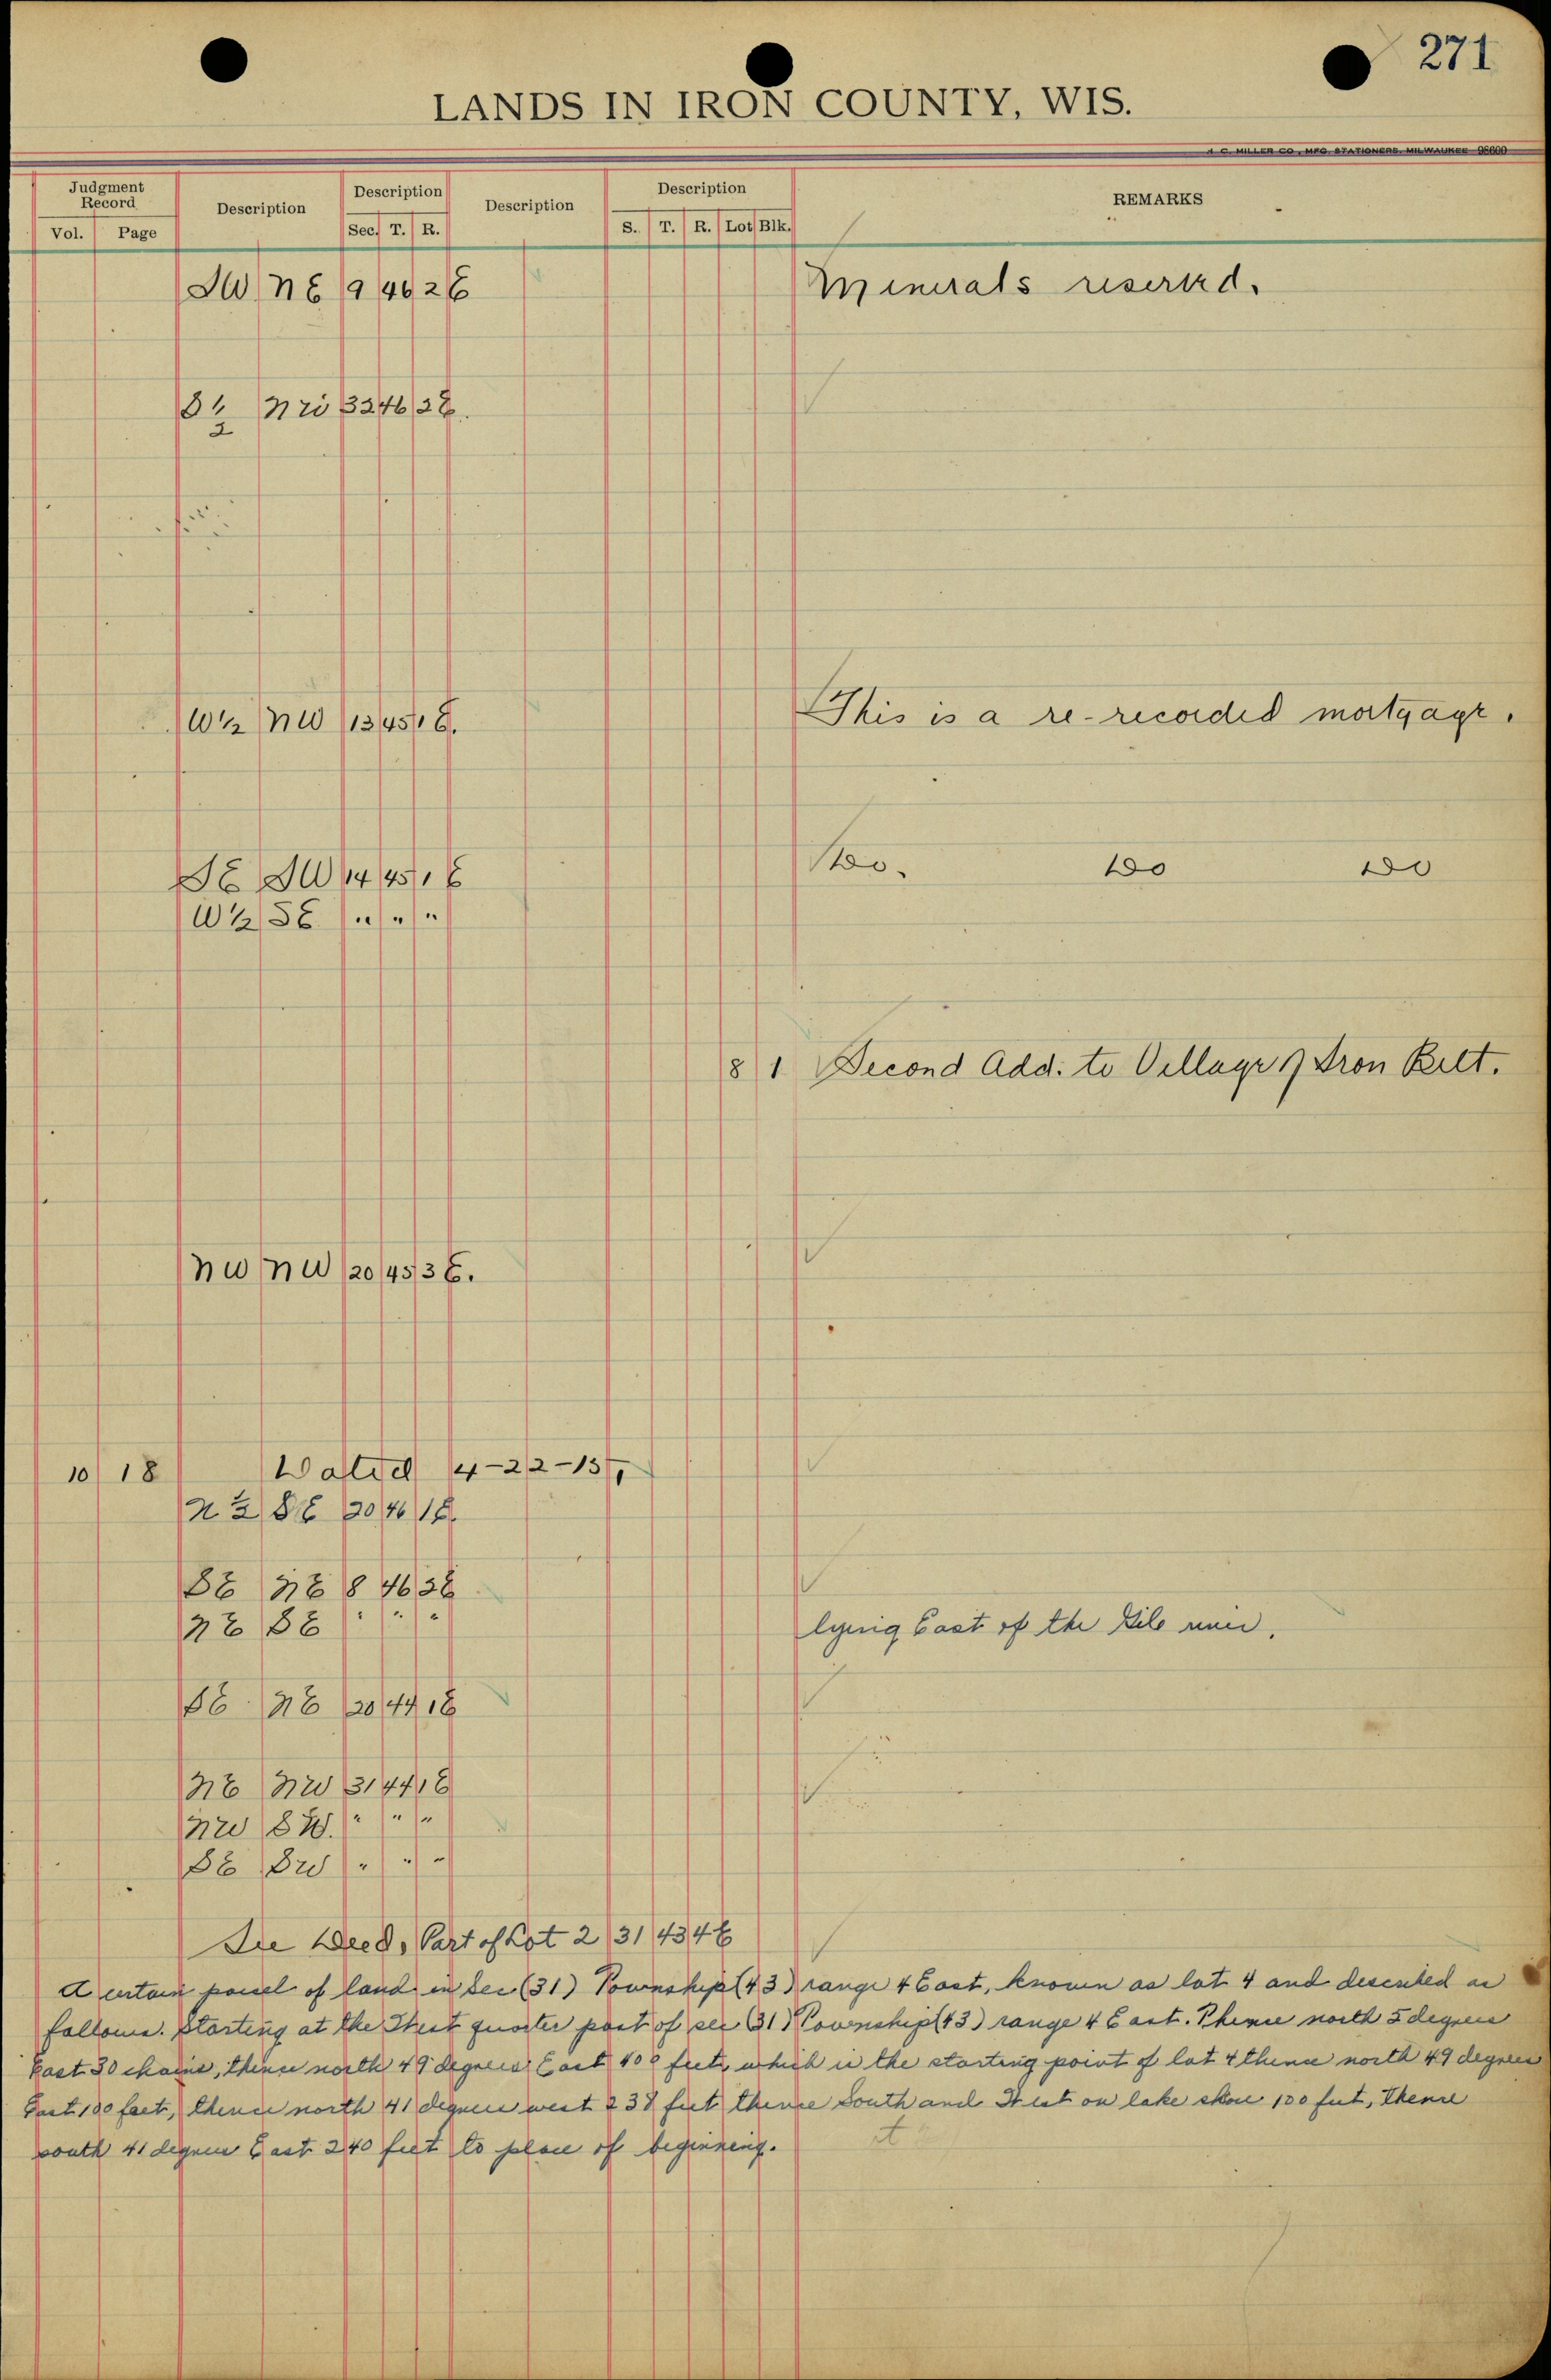 271
LANDS IN IRON COUNTY, WIS.
H. C. MILLER CO., MFG. STATIONERS, MILWAUKEE 98600
Judgment Record Description Description Description Description REMARKS
Vol. Page Sec. T. R. S. T. R. Lot Blk.
SW NE 9 46 2 E Minerals reserved.
S 1/2 NW 32 46 2 E.
W 1/2 NW 13 45 1 E. This is a re-recorded mortgage.
SE SW 14 45 1 E Do. Do Do
W 1/2 SE " " "
8 1 Second Add. to Village of Iron Belt.
NW NW 20 45 3 E.
10 18 Dated 4-22-15
N 1/2 SE 20 46 1 E.
SE NE 8 46 2 E
NE SE " " " lying East of the Gile river.
SE NE 20 44 1 E
NE NW 31 44 1 E
NW SW. " " "
SE SW " " "
See Deed, Part of Lot 2 31 43 4 E
A certain parcel of land in Sec (31) Township (43) range 4 East, known as lot 4 and described as
follows. Starting at the West quarter post of sec (31) Township (43) range 4 East. Thence north 5 degrees
East 30 chains, thence north 49 degrees East 400 feet, which is the starting point of lot 4 thence north 49 degrees
East 100 feet, thence north 41 degrees west 238 feet thence South and West on lake shore 100 feet, thence
south 41 degrees East 240 feet to place of beginning.